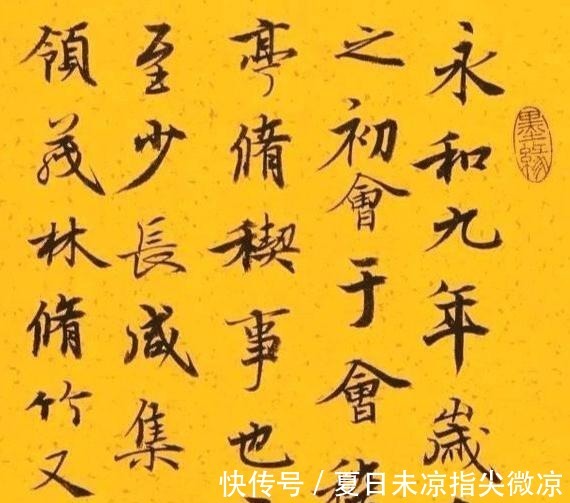 永和九年歲
之初會于會
亭脩稧事也
至少長咸集
領茂林脩竹又
墨緣
快传号／夏日未凉指尖微凉